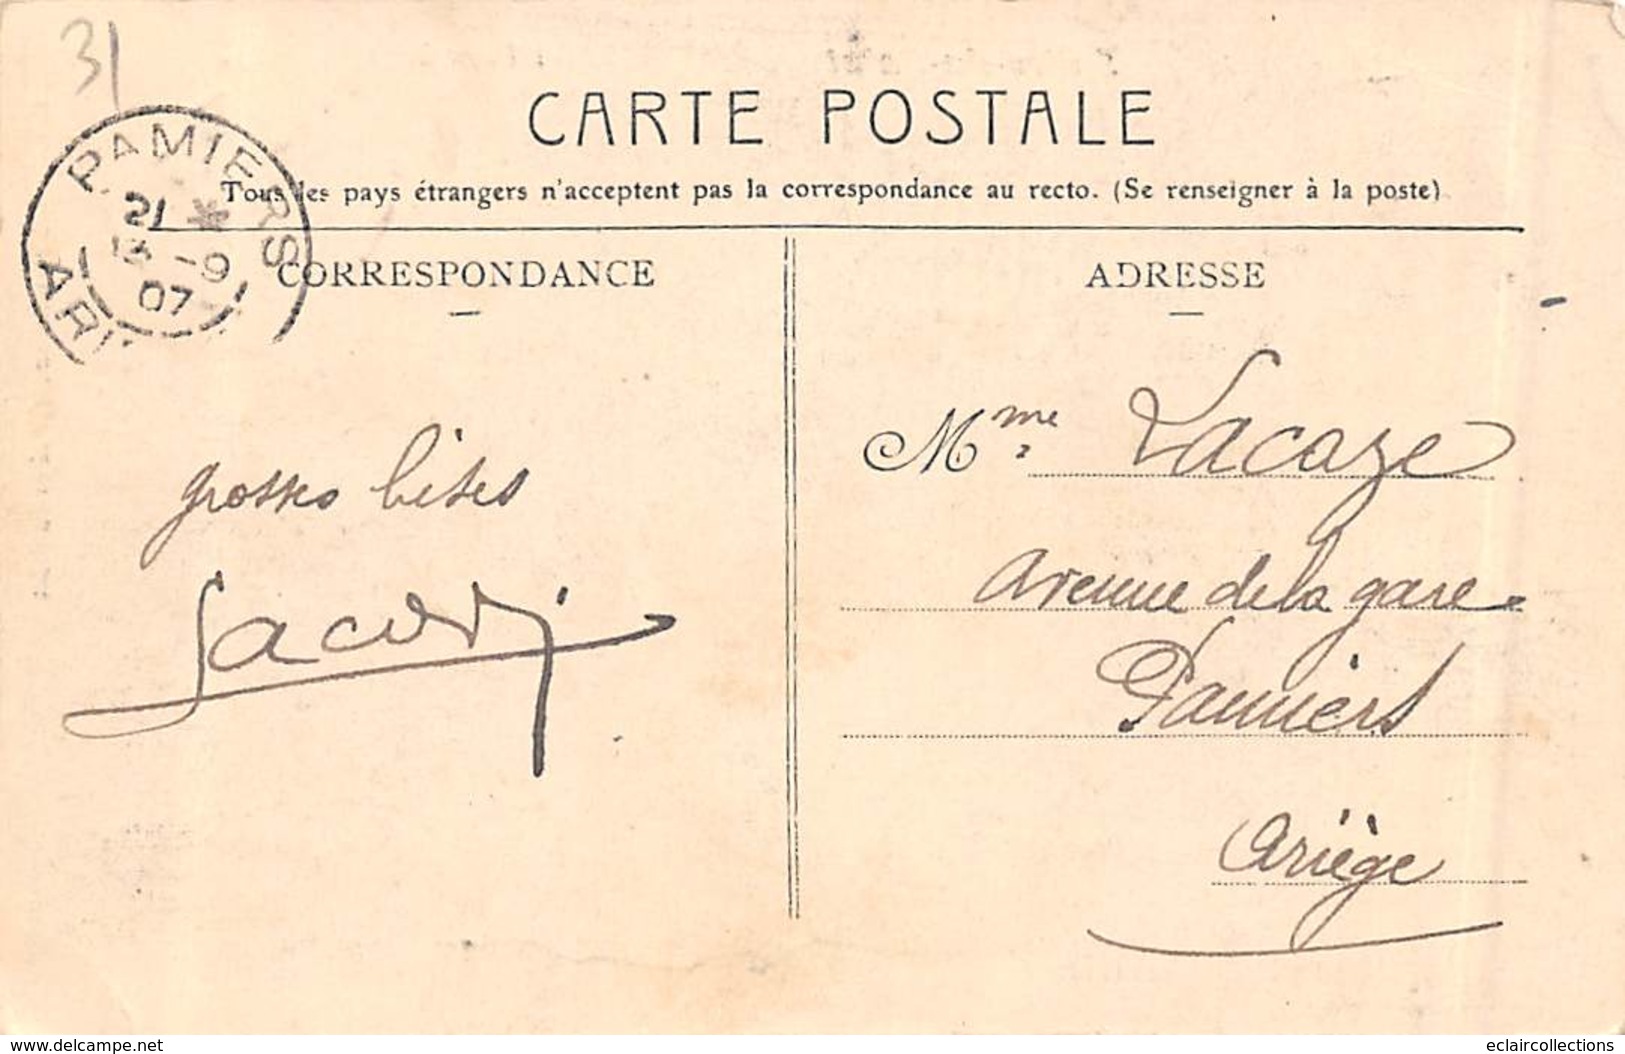 31
CARTE POSTALE
Tous les pays étrangers n'acceptent pas la correspondance au recto. (Se renseigner à la poste)
PAMIERS
21 *
-9
07
CORRESPONDANCE
ADRESSE
grosses bises
Mme Lacaze
avenue de la gare
Pamiers
Ariège
www.delcampe.net
eclaircollections